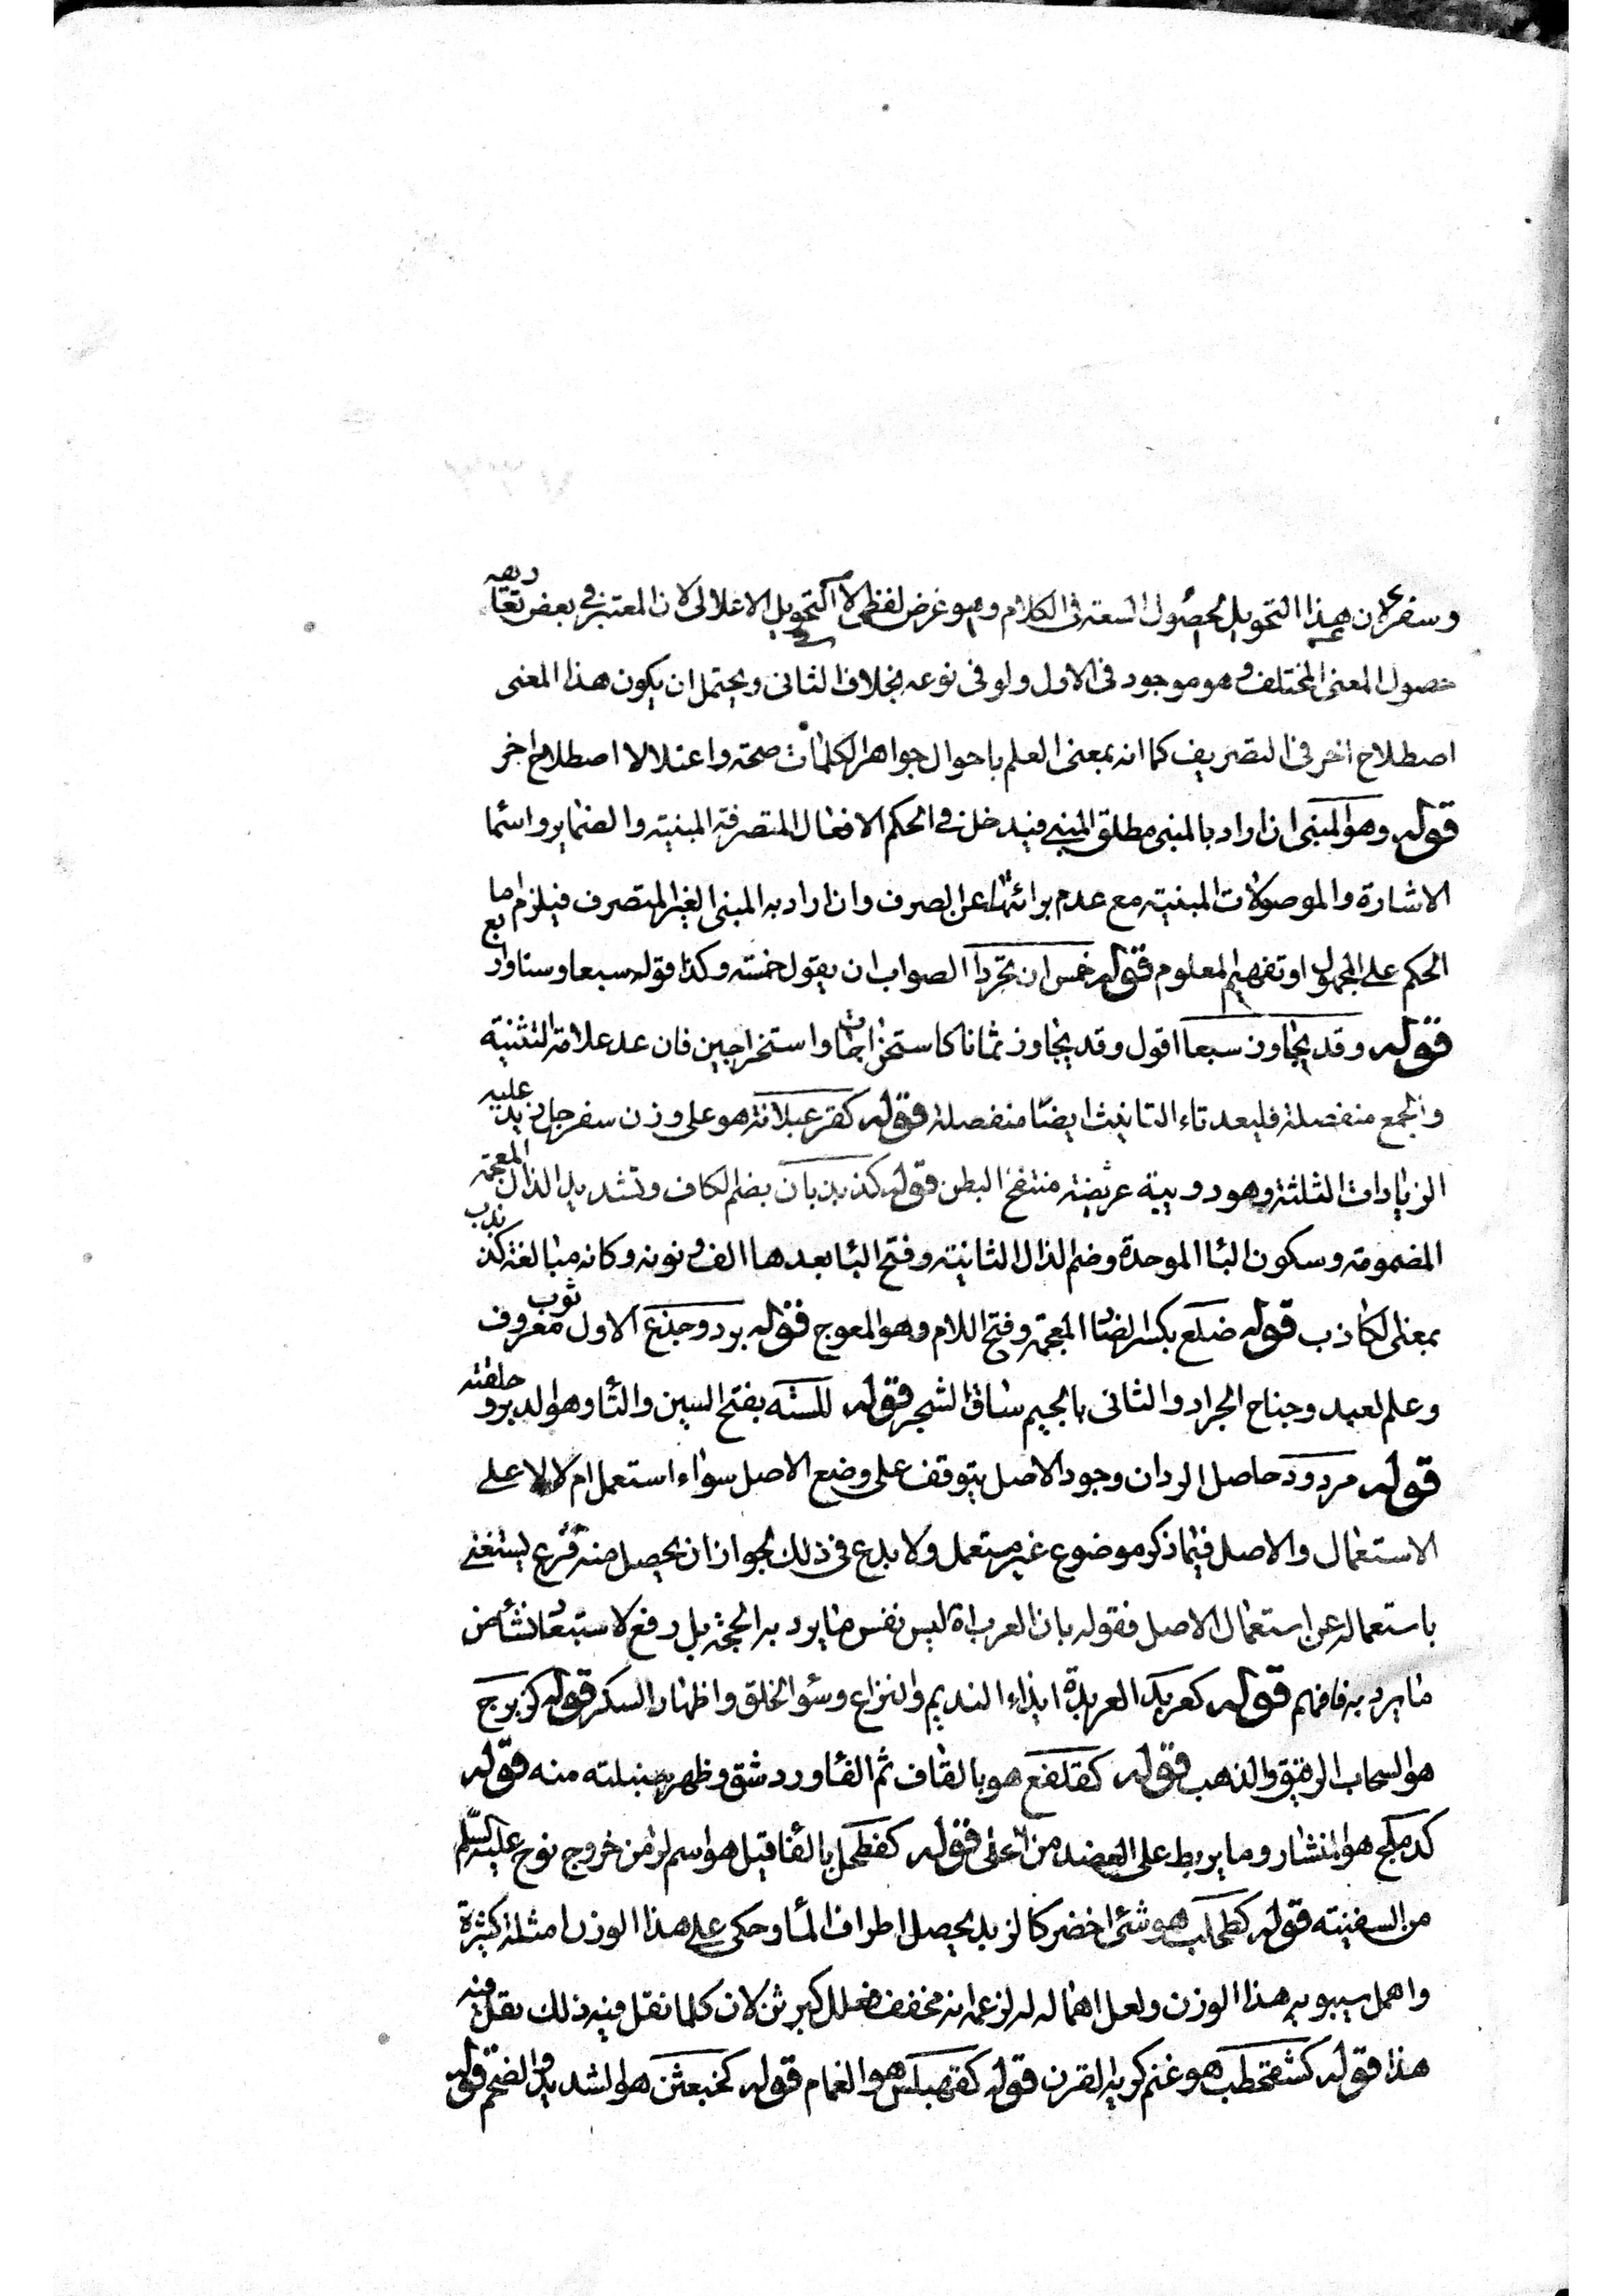 وسفر لان هذا التحويل لحصول السعة فى الكلام وهو غرض لفظى لا كالتحويل الاعلالى لان المعتبر فى بعض تعاريفه
حصول المعنى المختلف وهو موجود فى الاول ولو فى نوعه بخلاف الثانى ويحتمل ان يكون هذا المعنى
اصطلاح اخر فى التصريف كما انه بمعنى العلم باحوال جواهر الكلمات صحة واعتلالا اصطلاح اخر
قوله وهو المبنى ان اراد بالمبنى مطلق المبنى فيدخل فى الحكم الافعال المتصرفة المبنية والضماير واسما
الاشارة والموصولات المبنية مع عدم برائتها عن الصرف وان اراد به المبنى الغير المتصرف فيلزم اما
الحكم على المجهول او تفهيم المعلوم قوله خمس ان تجردا الصواب ان يقول خمسة وكذا قوله سبعا وستا واربع
قوله وقد يجاوز سبعا اقول وقد يجاوز ثمانا كاستخراجات واستخراجين فان عد علامة التثنية
والجمع منفصلة فليعد تاء التانيث ايضا منفصلة قوله كقرعبلانة هو على وزن سفرجل زيد عليه
الزيادات الثلثة وهو دويبة عريضة منتفخ البطن قوله كذبذبان بضم الكاف وتشديد الذال المعجمة
المضمومة وسكون البا الموحدة وضم الذال الثانية وفتح البا بعدها الف ونونه وكانه مبالغة كذبذب
بمعنى الكاذب قوله ضلع بكسر الضا المعجمة وفتح اللام وهو المعوج قوله برد وجذع الاول ثوب معروف
وعلم لعبد وجناح الجراد والثانى بالجيم ساق الشجر قوله للسته بفتح السين والتا وهو الدبر و حلقته
قوله مردود حاصل الرد ان وجود الاصل يتوقف على وضع الاصل سواء استعمل ام لا لا على
الاستعمال والاصل فيما ذكر موضوع غير مستعمل ولا بدع فى ذلك لجواز ان يحصل منه فرع ليستغنى
باستعماله عن استعمال الاصل فقوله بان العرب اه ليس نفس ما يرد به الحجة بل رفع لاستبعا نشأ من
ما يرد به فافهم قوله كعربد العربدة ايذاء النديم والنزاع وسؤ الخلق واظهار السكر قوله كزبرج
هو السحاب الرقيق والذهب قوله كقلفع هو بالقاف ثم الفا ورد شق وظهر منه قوله
كدملج هو المنشار وما يربط على العضد من اعلى قوله كفطحل بالفا قيل هو اسم لزمن خروج نوح عليه السلم
من السفينته قوله كطحلب هو شئ اخضر كالزبد يحصل اطراف الما وحكى على هذا الوزن امثلة كثيرة
واهمل سيبويه هذا الوزن ولعل اهماله له لزعمه انه مخفف فعلل كبرثن لان كلما نقل فيه ذلك نقل فيه
هذا قوله كشقحطب هو غنم كريه القرن قوله كقهبلس هو الغمام قوله كخبعثن هو الشديد والضخم قوله